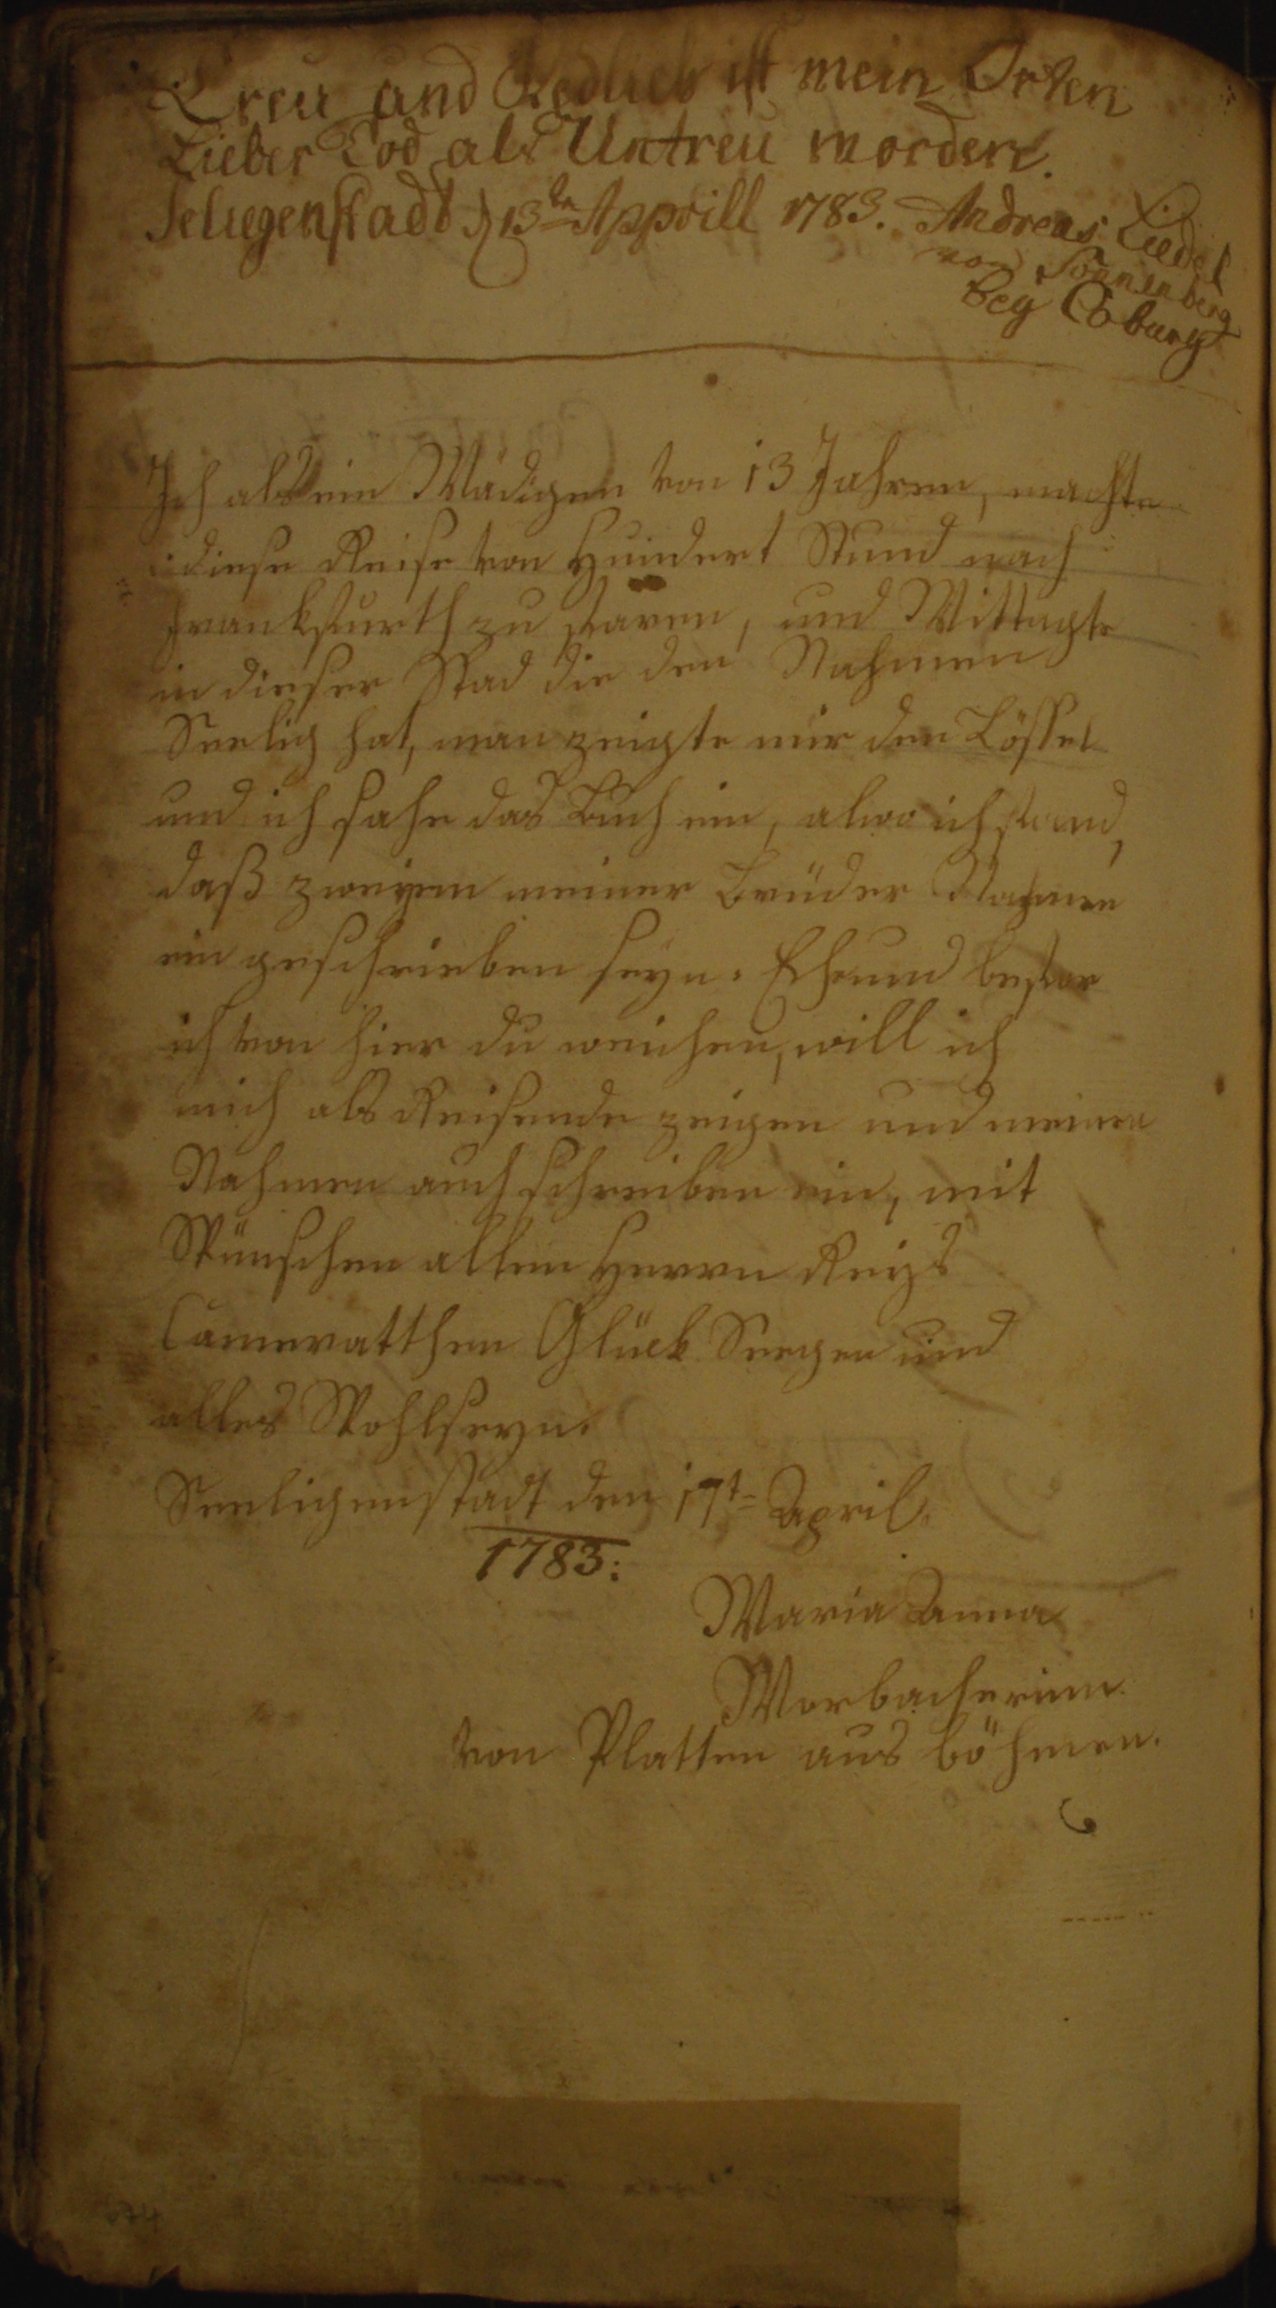 Treu und Redlich ist mein Orten
Lieber Tod als Untreu worden.
Seliegenstadt d 13tn Apprill 1783. Andreas Liedel
von Sonnenberg
bey Coburg
Ich als ein Mädigen von 13 Jahren, machte
diese Reise von Hundert Stund nach
Franckfurth zu faren, und Mittagte
in dieser Stad die den Nahmen
Seelig hat, man zeigte mir den Löffel
und ich sahe das Buch ein, alwo ich fand,
daß zweyen meiner Brüder Nahmen
ein geschrieben seyn. Ehe und befor
ich von hier du weichen, will ich
mich als Reisende zeigen und meinen
Nahmen auch schreiben ein, mit
Wünschen allen Herrn Reys
Cameratthen Glück Seegen und
alles Wohlseyn.
Seeligenstadt den 17t April.
1783:
Maria Anna
Worbacherinn
von Platten aus böhmen.